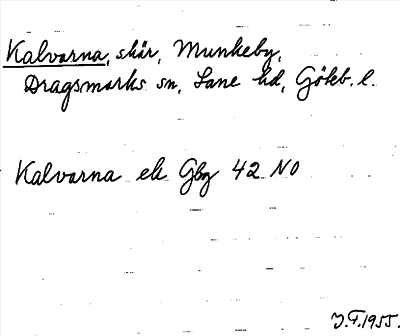 Kalvarna, skär, Munkeby,
Dragsmarks sn, Lane hd, Göteb. l.
Kalvarna ek Gbg 42 NO
J.F. 1955.